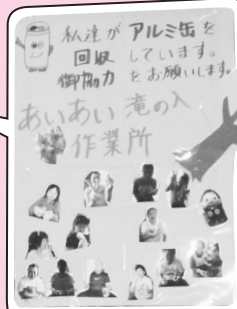 私達が アルミ缶を
回収 しています。
御協力 をお願いします。
あいあい 滝の入
作業所